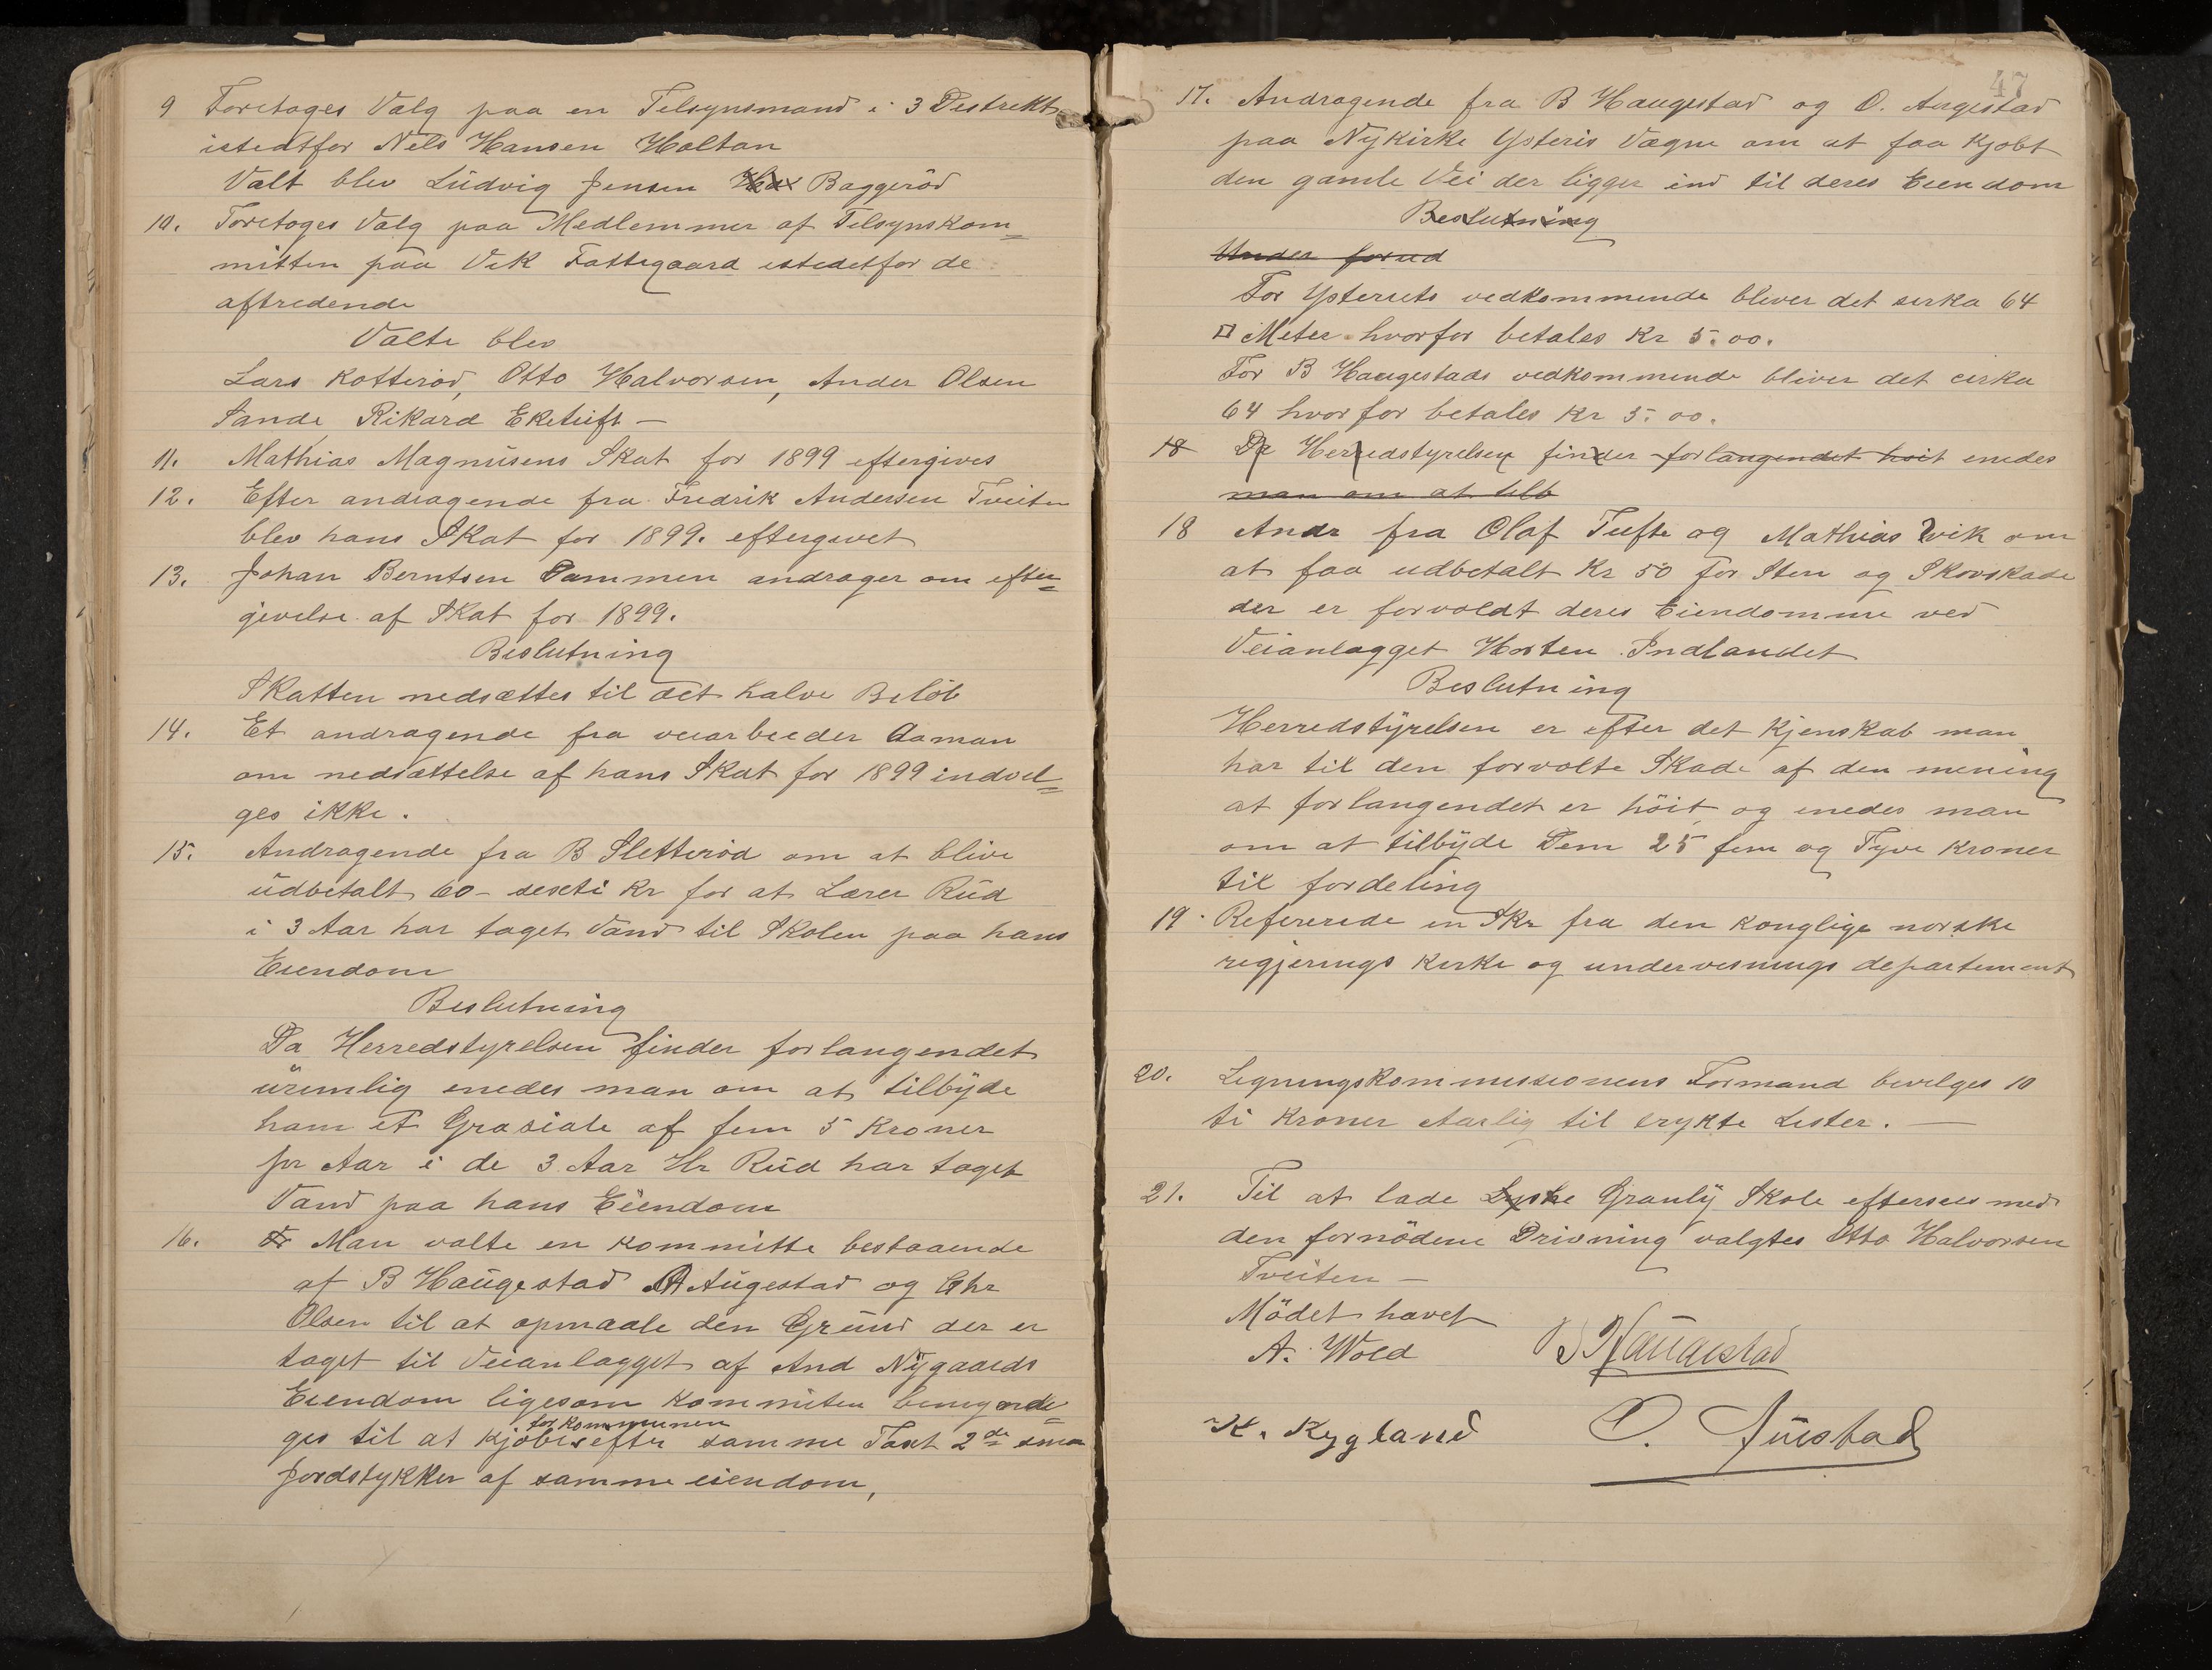 9 Foretoges Valg paa en Telsynsmand i 3 Destrekt
istedtfor Nels Hansen Holtan
Valt blev Ludvig Jensen Baggeröd
10. Foretoges Valg paa Medlemmer af Telsynskom=
mitten paa Vek Fattegaard estedetfor de
aftredende
Valte blev
Lars Kotteröd, Otto Halvorsen, Ander Olsen
Sande, Rikard Eketuft —
11. Mathias Magnusens Skat for 1899 eftergives
12. Efter andragende fra Fredrik Andersen Tveiten
blev hans Skat for 1899. eftergevet
13. Johan Berntsen Dammen andrager om efter=
givelse af Skat for 1899.
Beslutning
Skatten nedsættes til det halve Belöb
14. Et andragende fra veiarbeider Aaman
om nedsættelse af hans Skat for 1899 indvel=
ges ikke.
15. Andragende fra B Sletteröd om at blive
udbetalt 60 - sexti Kr for at Lærer Rud
i 3 Aar har taget Vand til Skolen paa hans
Eiendom
Beslutning
Da Herredstyrelsen finder forlangendet
uremlig enedes man om at tilbyde
ham et Grasiale af fem 5 Kroner
pr Aar i de 3 Aar Hr Rud har taget
Vand paa hans Eiendom
16. Man valte en Kommitte bestaaende
af B Haugestad Augestad og Chr
Olsen til at opmaale den Grund der er
taget til Veianlægget af And Nygaards
Eiendom ligesom Kommiten bemynde=
for Kommunen
ges til at Kjöbe efter samme Taxt 2de smaa
Jordstykker af samme eiendom,
47
17. Andragende fra B Haugestad og O. Augestad
paa Nykirke Ysteris Vægne om at faa Kjøbt
den gamle Vei der ligger ind til deres Eiendom
Beslutning
Under forud
For Ysteriets vedkommende bliver det serka 64
□ Meter hvorfor betales Kr 5.00.
For B Haugestads vedkommende bliver det cerka
64 hvorfor betales Kr 5.00.
18 Da Herredstyrelsen finder forlangendet höit enedes
man om at tilb
18 Andr fra Olaf Tufte og Mathias Vik om
at faa udbetalt Kr 50 for Sten og Skovskade
der er forvoldt deres Eiendomme ved
Veianlægget Horten Indlandet
Beslutning
Herredstyrelsen er efter det Kjenskab man
har til den forvolte Skade af den mening
at forlangendet er höit og enedes man
om at tilbyde Dem 25 fem og Tyve Kroner
til fordeling
19. Refererede en Skr fra den Konglige norske
regjerings Kirke og undervesnings departement
20. Legningskommissionens Formand bevelges 10
ti Kroner Aarlig til trykte Lester. —
21. Til at lade Granly Skole eftersees med
den fornödene Drivning valgtes Otto Halvorsen
Tveiten —
Mödet havet
A. Wold B Haugestad
K. Rygland O.